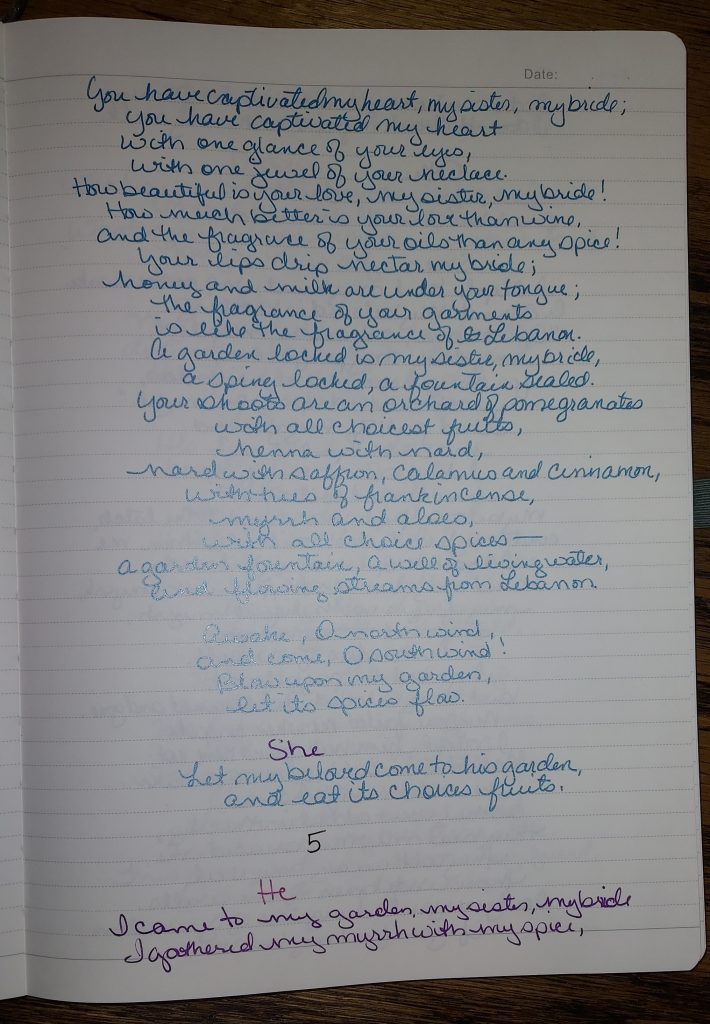 Date:
You have captivated my heart, my sister, my bride;
you have captivated my heart
with one glance of your eyes,
with one jewel of your neclace.
How beautiful is your love, my sister, my bride!
How much better is your love than wine,
and the fragrance of your oils than any spice!
Your lips drip nectar my bride;
honey and milk are under your tongue;
the fragrance of your garments
is like the fragrance of Lebanon.
A garden locked is my sister, my bride,
a sping locked, a fountain sealed.
Your shoots are an orchard of pomegranates
with all choicest fruits,
henna with nard,
nard with saffron, calamus and cinnamon,
with trees of frankincense,
myrrh and aloes,
with all choice spices—
a garden fountain, a well of living water,
and flowing streams from Lebanon.
Awake, O north wind,
and come, O south wind!
Blow upon my garden,
let its spices flow.
She
Let my beloved come to his garden,
and eat its choices fruits.
5
He
I came to my garden, my sister, my bride
I gathered my myrrh with my spice,